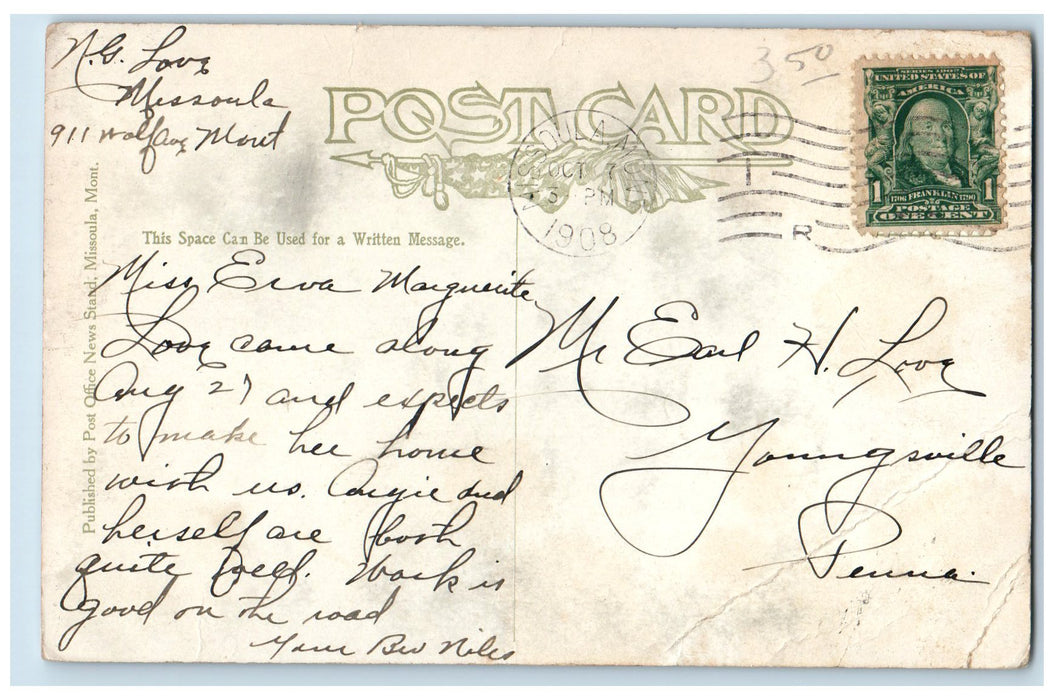 N.G. Love
Missoula
911 Mont
3 50
POST CARD
MISSOULA
OCT 3
3 PM
1908
R
SERIES 1902
UNITED STATES OF
AMERICA
1 1
1706 FRANKLIN 1790
POSTAGE
ONE CENT
Published by Post Office News Stand, Missoula, Mont.
This Space Can Be Used for a Written Message.
Miss Erva Marguerite
Love came along
Aug 27 and expects
to make her home
with us. Angie and
herself are both
quite well. Work is
good on the road
Your Bro Niles
Mr Earl H. Love
Youngsville
Penna.